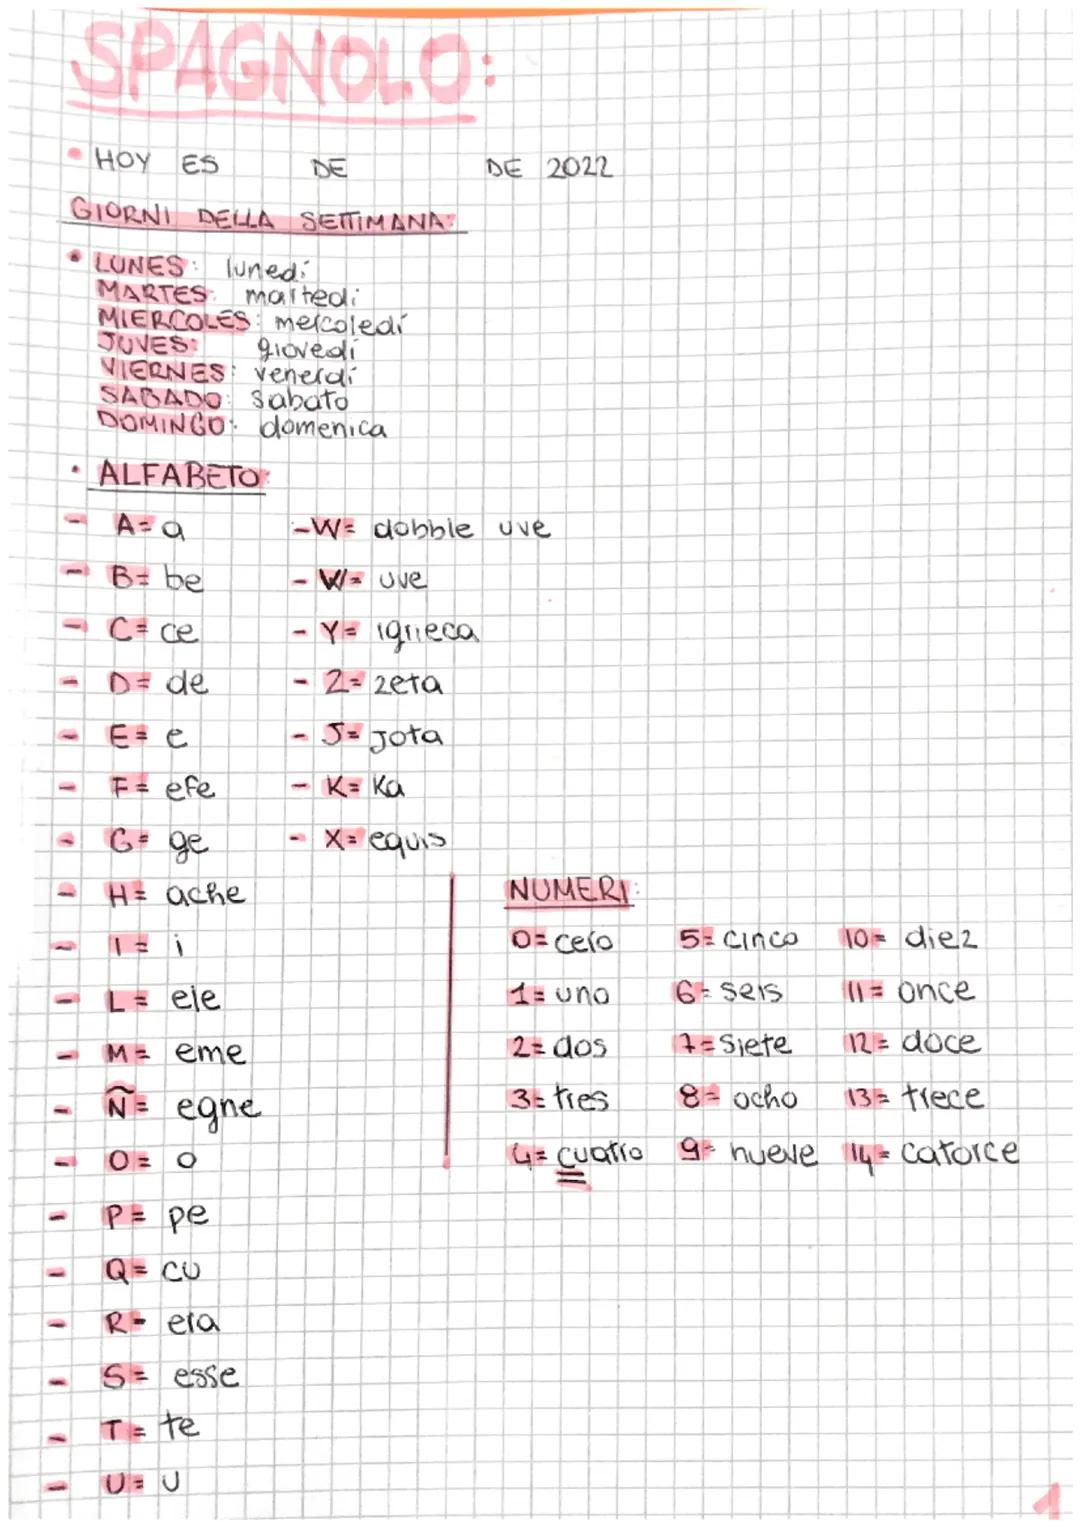 SPAGNOLO:
• HOY ES DE DE 2022
GIORNI DELLA SETTIMANA:
• LUNES: lunedí
MARTES: martedi
MIERCOLES: mercoledí
JUVES: giovedí
VIERNES: venerdí
SABADO: sabato
DOMINGO: domenica
• ALFABETO:
- A= a
- B= be
- C= ce
- D= de
- E= e
- F= efe
- G= ge
- H= ache
- I= i
- L= ele
- M= eme
- Ñ= egne
- O= o
- P= pe
- Q= cu
- R= era
- S= esse
- T= te
- U= U
- W= dobble uve
- W= uve
- Y= igrieca
- Z= zeta
- J= jota
- K= Ka
- X= equis
NUMERI:
0= cero 5= cinco 10= diez
1= uno 6= seis 11= once
2= dos 7= siete 12= doce
3= tres 8= ocho 13= trece
4= cuatro 9= nueve 14= catorce
1